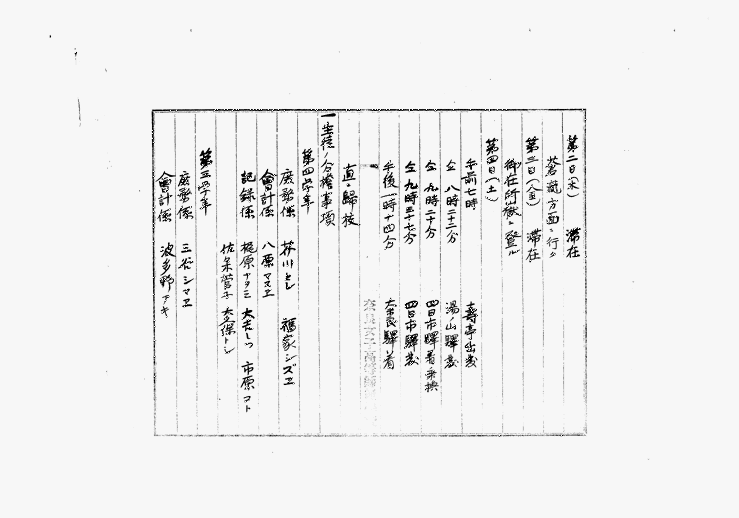 第二日(木) 滞在
蒼瀧方面ニ行ク
第三日(金) 滞在
御在所嶽ニ登ル
第四日(土)
午前七時 壽亭出発
仝 八時二十二分 湯ノ山驛発
仝 九時二十分 四日市驛着乗換
仝 九時三十七分 四日市驛発
午後一時十四分 奈良驛着
直ニ歸校
一 生徒ノ分擔事項
第四学年
庶務係 芥川トシ 福家シズヱ
會計係 八原マスヱ
記録係 梶原ナタミ 市原コト
佐々木営子 大久保トシ
第三学年
庶務係 三谷シマヱ
會計係 波多野アキ